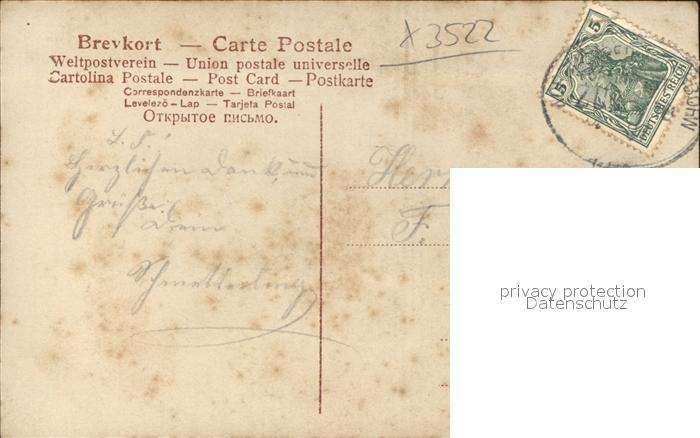 x 3522
Brevkort — Carte Postale
Weltpostverein — Union postale universelle
Cartolina Postale — Post Card — Postkarte
Correspondenzkarte — Briefkaart
Levelező-Lap — Tarjeta Postal
Открытое письмо.
5
5
DEUTSCHES REICH
L. F.!
Herzlichen Dank und
Grüße
Dein
Schmetterling
F.
privacy protection
Datenschutz